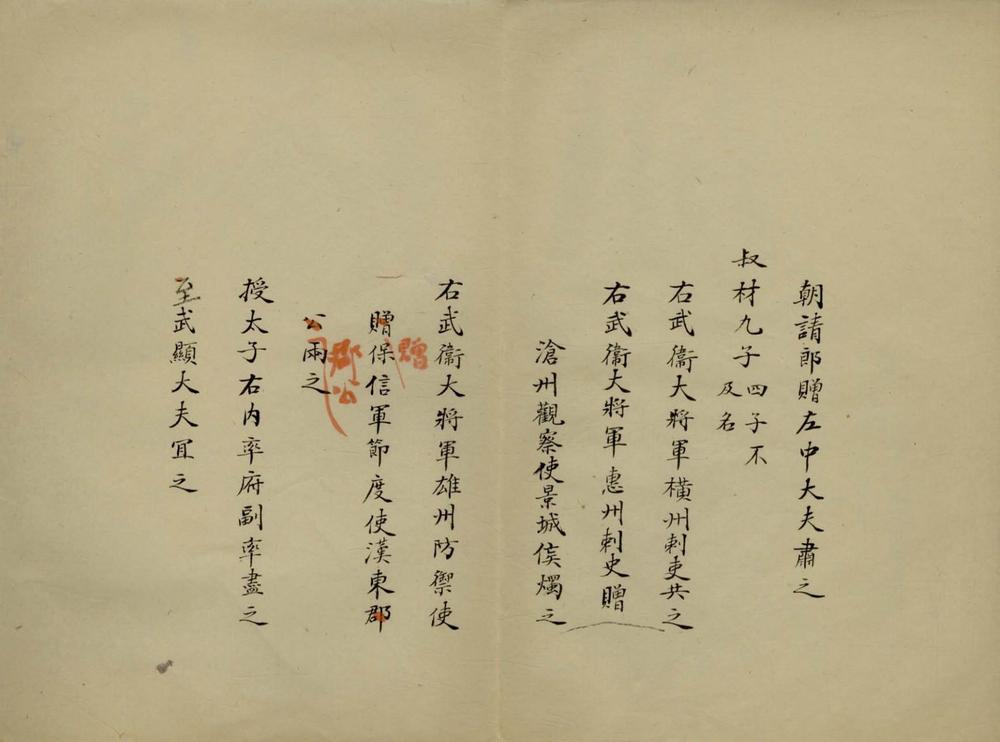 朝請郎贈左中大夫肅之
叔材九子四子不
及名
右武衞大將軍橫州刺吏共之
右武衞大將軍惠州刺史贈
滄州觀察使景城侯燭之
右武衞大將軍雄州防禦使
贈
贈保信軍節度使漢東郡
郡公
公兩之
授太子右內率府副率盡之
至武顯大夫宜之